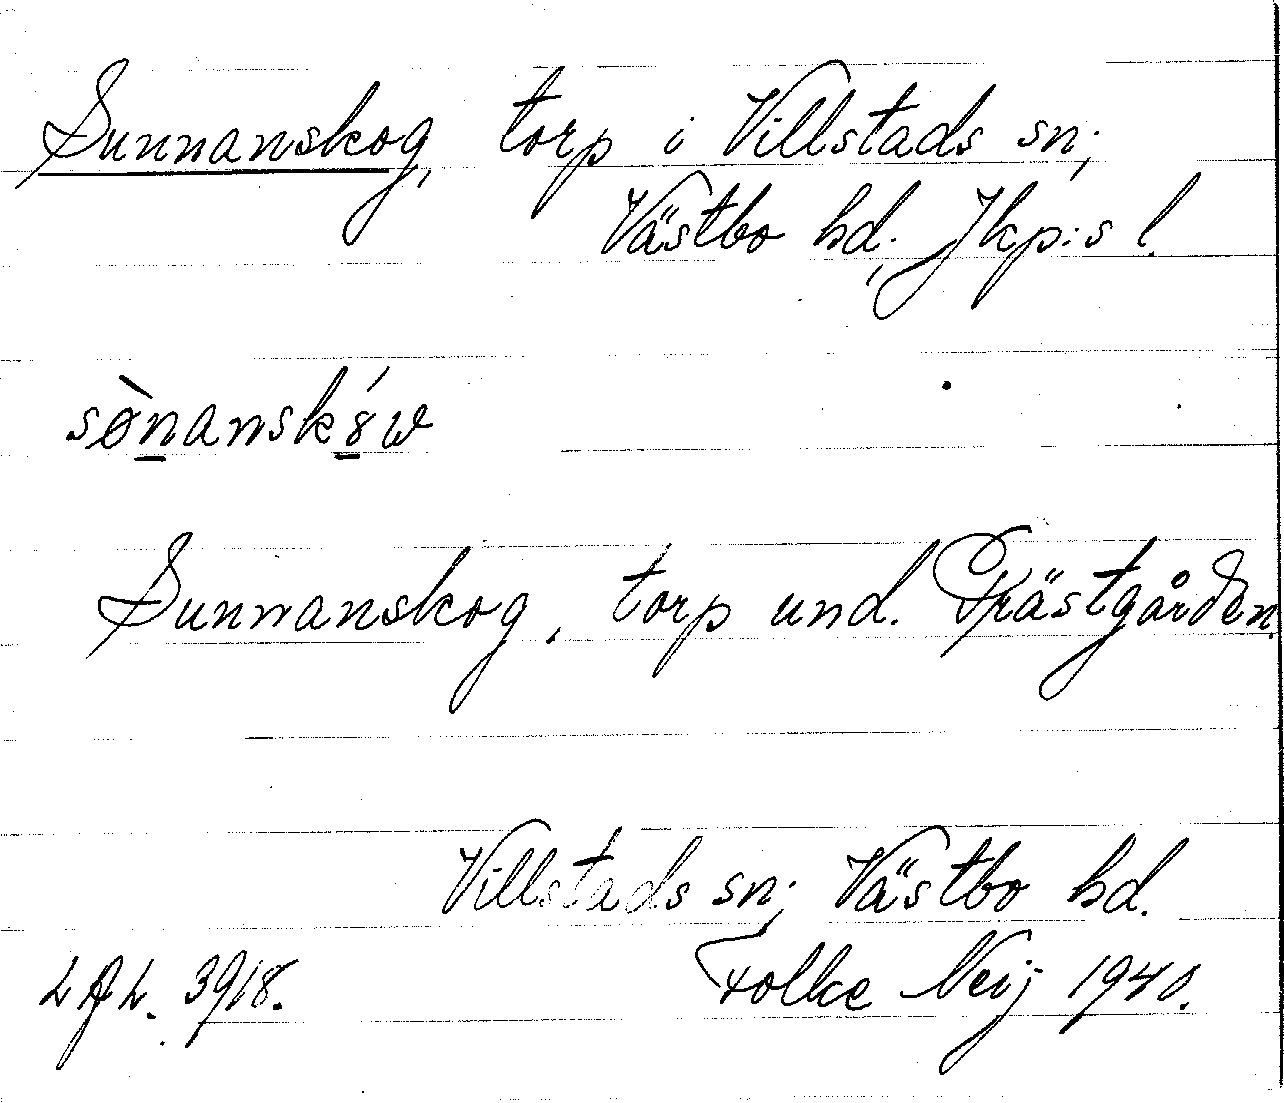 Sunnanskog, torp i Villstads sn;
Västbo hd. Jkp:s l.
sònanskó̱w
Sunnanskog, torp und. Prästgården.
Villstads sn; Västbo hd.
Folke Neij 1940.
3918.